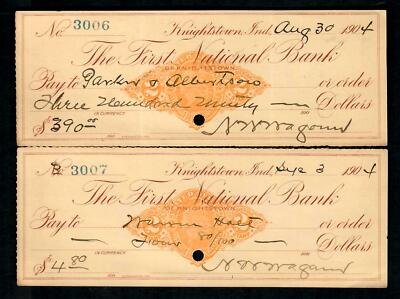 No. 3006 Knightstown, Ind., Aug 30 1904
The First National Bank
OF KNIGHTSTOWN.
Pay to Parker & Albertson or order
Three Hundred Ninety Dollars
IN CURRENCY
$390.00
3007 Knightstown, Ind., 3 1904
The First National Bank
OF KNIGHTSTOWN.
Pay to Warren or order
Four 80/100 Dollars
IN CURRENCY
$4.80